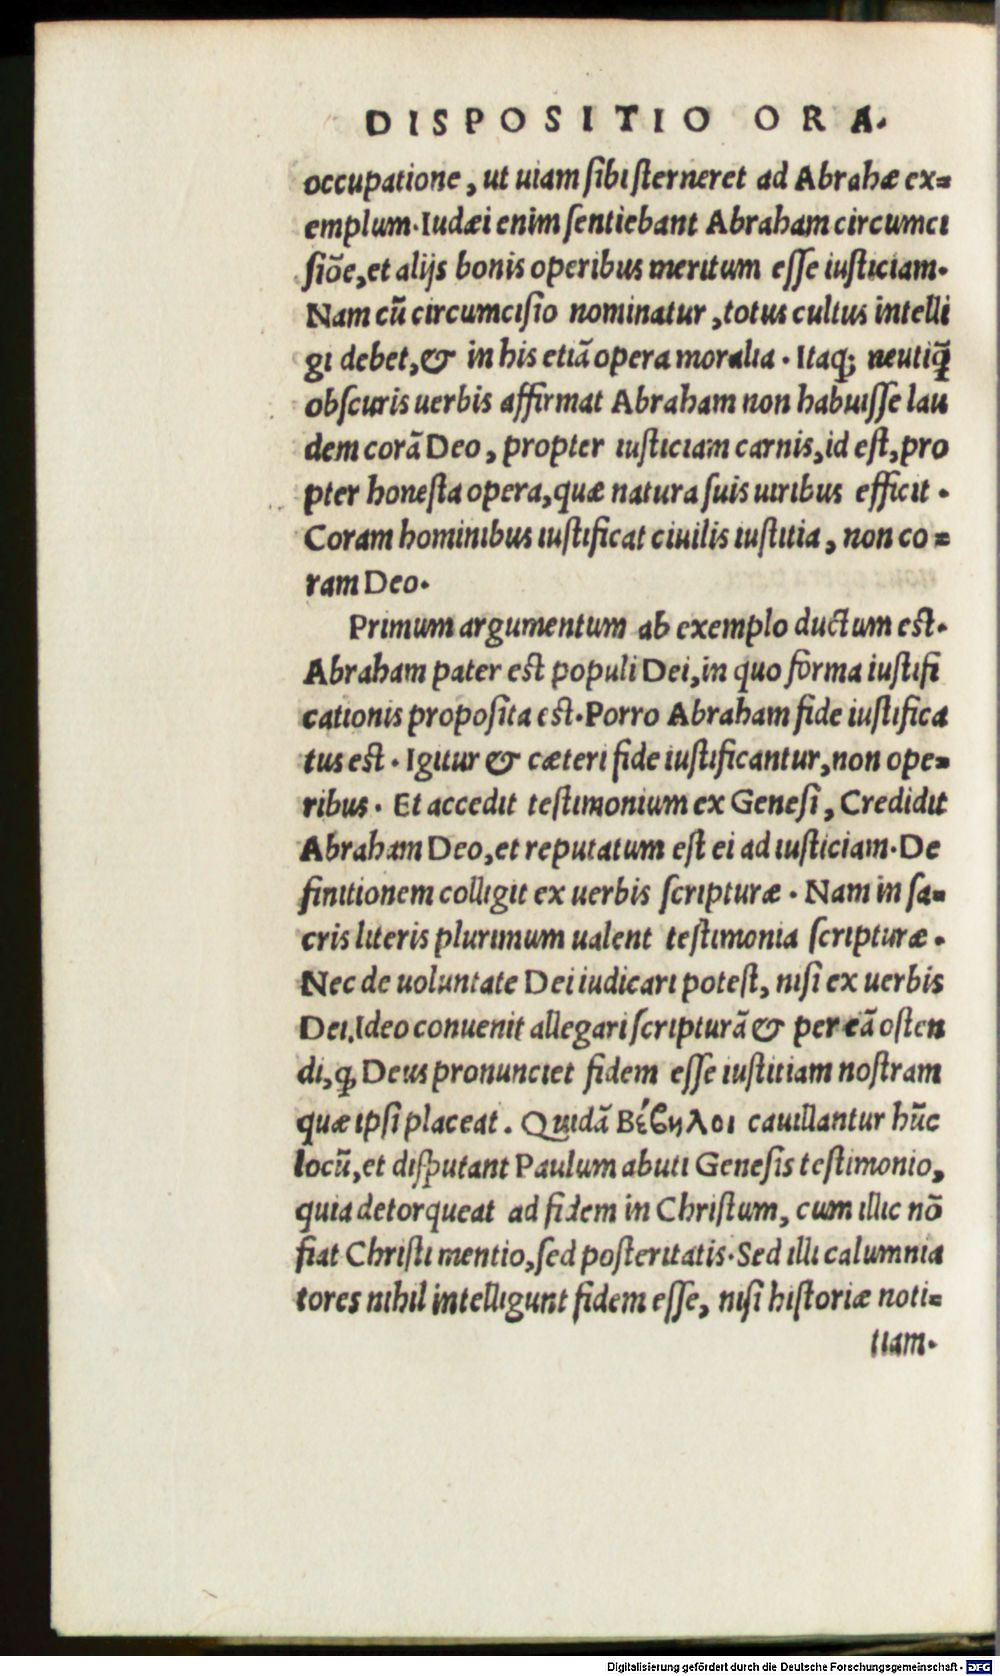 DISPOSITIO ORA.
occupatione, ut uiam sibi sterneret ad Abrahæ ex=
emplum. Iudæi enim sentiebant Abraham circumci
siõe, et alijs bonis operibus meritum esse iusticiam.
Nam cũ circumcisio nominatur, totus cultus intelli
gi debet, & in his etiã opera moralia. Itaq; neutiq̃
obscuris uerbis affirmat Abraham non habuisse lau
dem corã Deo, propter iusticiam carnis, id est, pro
pter honesta opera, quæ natura suis uiribus efficit.
Coram hominibus iustificat ciuilis iustitia, non co=
ram Deo.
Primum argumentum ab exemplo ductum est.
Abraham pater est populi Dei, in quo forma iustifi
cationis proposita est. Porro Abraham fide iustifica
tus est. Igitur & cæteri fide iustificantur, non ope=
ribus. Et accedit testimonium ex Genesi, Credidit
Abraham Deo, et reputatum est ei ad iusticiam. De
finitionem colligit ex uerbis scripturæ. Nam in sa=
cris literis plurimum ualent testimonia scripturæ.
Nec de uoluntate Dei iudicari potest, nisi ex uerbis
Dei. Ideo conuenit allegari scripturã & per eã osten
di, ꝙ Deus pronunciet fidem esse iustitiam nostram
quæ ipsi placeat. Quidã Βέϐηλοι cauillantur hũc
locũ, et disputant Paulum abuti Genesis testimonio,
quia detorqueat ad fidem in Christum, cum illic nõ
fiat Christi mentio, sed posteritatis. Sed illi calumnia
tores nihil intelligunt fidem esse, nisi historiæ noti=
tiam.
Digitalisierung gefördert durch die Deutsche Forschungsgemeinschaft - DFG